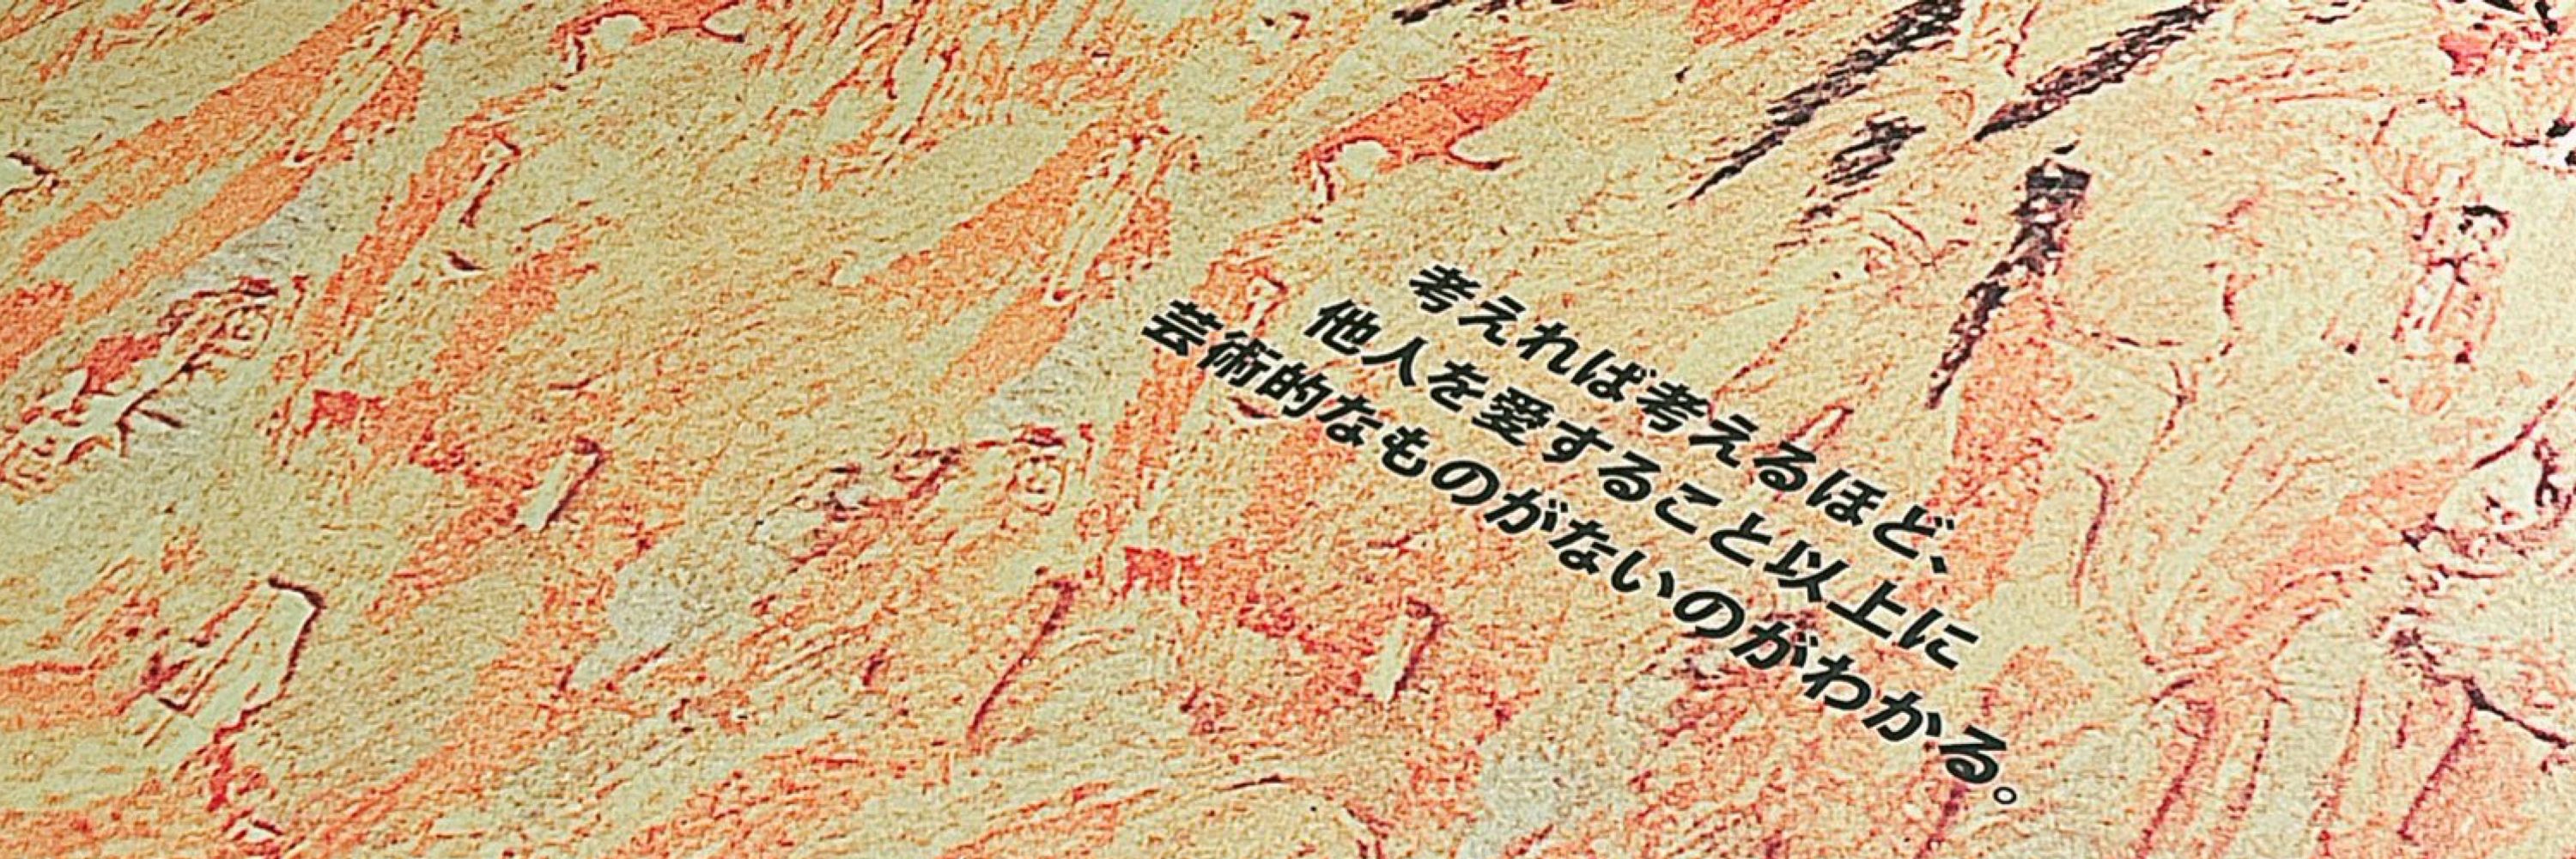 考えれば考えるほど、
他人を愛すること以上に
芸術的なものがないのがわかる。